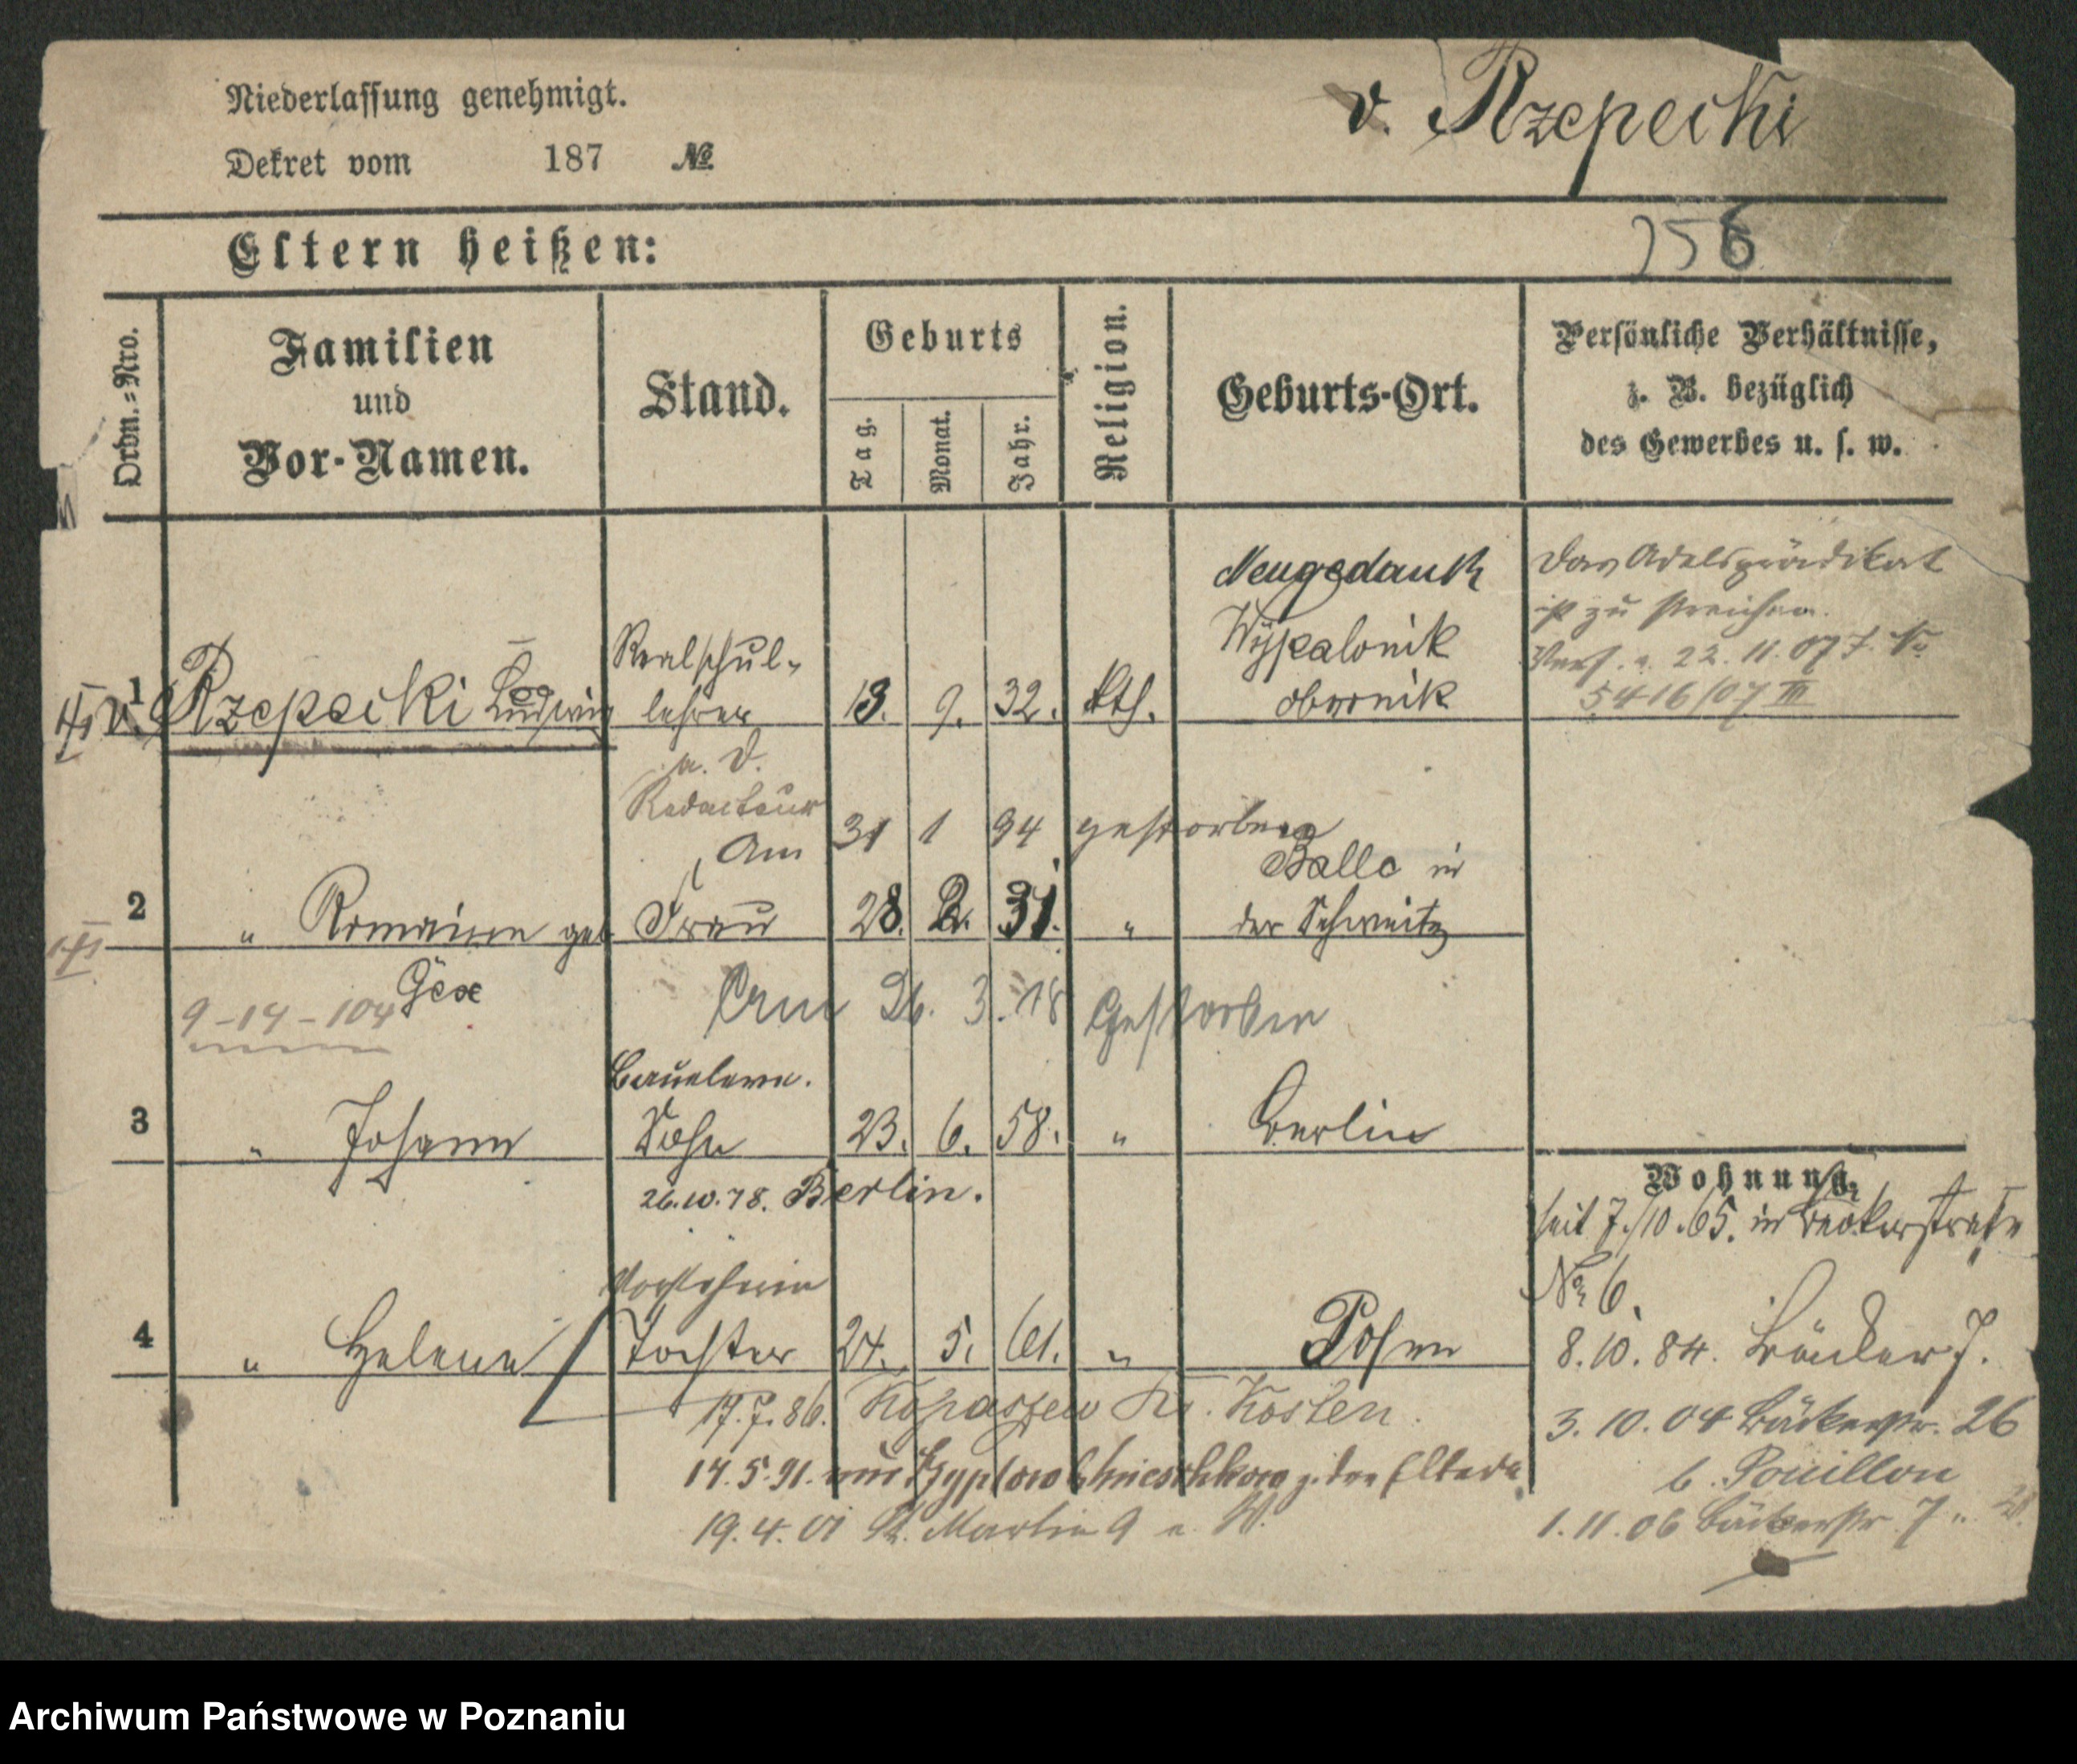 Niederlassung genehmigt.
v. Rzepecki
Dekret vom 187 №
Eltern heißen:
256
Ordn.-Nro.
Familien
und
Vor-Namen.
Stand.
Geburts
Tag.
Monat.
Jahr.
Religion.
Geburts-Ort.
Persönliche Verhältnisse,
z. B. bezüglich
des Gewerbes u. s. w.
Neugedank
Das Adelsprädikat
ist zu streichen.
Verf. v. 22. 11. 07 J. No
5416/07 III
Realschul-
Obornik
1 v. Rzepecki Ludwig lehrer 13. 9. 32. kth.
a. D.
Redacteur
Am 31 1 94 gestorben
Balle in
2 " Romaine geb Frau 28. 2. 31. " der Schweitz
Gex
9-14-104
Am 26. 3. 18 Gestorben
3 " Johann Sohn 23. 6. 58. " Berlin
26.10.78. Berlin.
Wohnung.
seit 7./10.65. in Bäckerstraße
No 6.
4 " Helene Tochter 24. 5. 61. " Posen
8.10.84. Bäcker 7.
17.7.86. Kopaszewo Kr. Kosten.
3.10.04 Bäckerstr. 26
14.5.91. z. den Eltern
b. Pouillon
19.4.01 St. Martin 9
1.11.06 Bäckerstr. 7
Archiwum Państwowe w Poznaniu